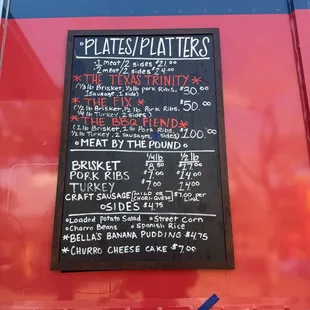 • PLATES/PLATTERS •
1 Meat/2 sides $21.00
2 meat/2 sides $24.00
* THE TEXAS TRINITY *
(1/3 lb Brisket, 1/3 lb pork Ribs,
1 Sausage, 1 side) $30.00
* THE FIX *
(1/2 lb Brisket, 1/2 lb Pork Ribs,
1/2 lb Turkey, 2 sides) $50.00
* THE BBQ FIEND *
(1 lb Brisket, 1 lb Pork Ribs,
1/2 lb Turkey, 2 Sausages, sides) $100.00
• MEAT BY THE POUND •
1/4 lb 1/2 lb
BRISKET $8.50 $17.00
PORK RIBS $7.00 $14.00
TURKEY $7.00 $14.00
CRAFT SAUSAGE (MILD OR CHORI-QUESO) $7.00 per Link
• SIDES $4.75
• Loaded Potato Salad • Street Corn
• Charro Beans • Spanish Rice
* BELLA'S BANANA PUDDING $4.75
* CHURRO CHEESE CAKE $7.00